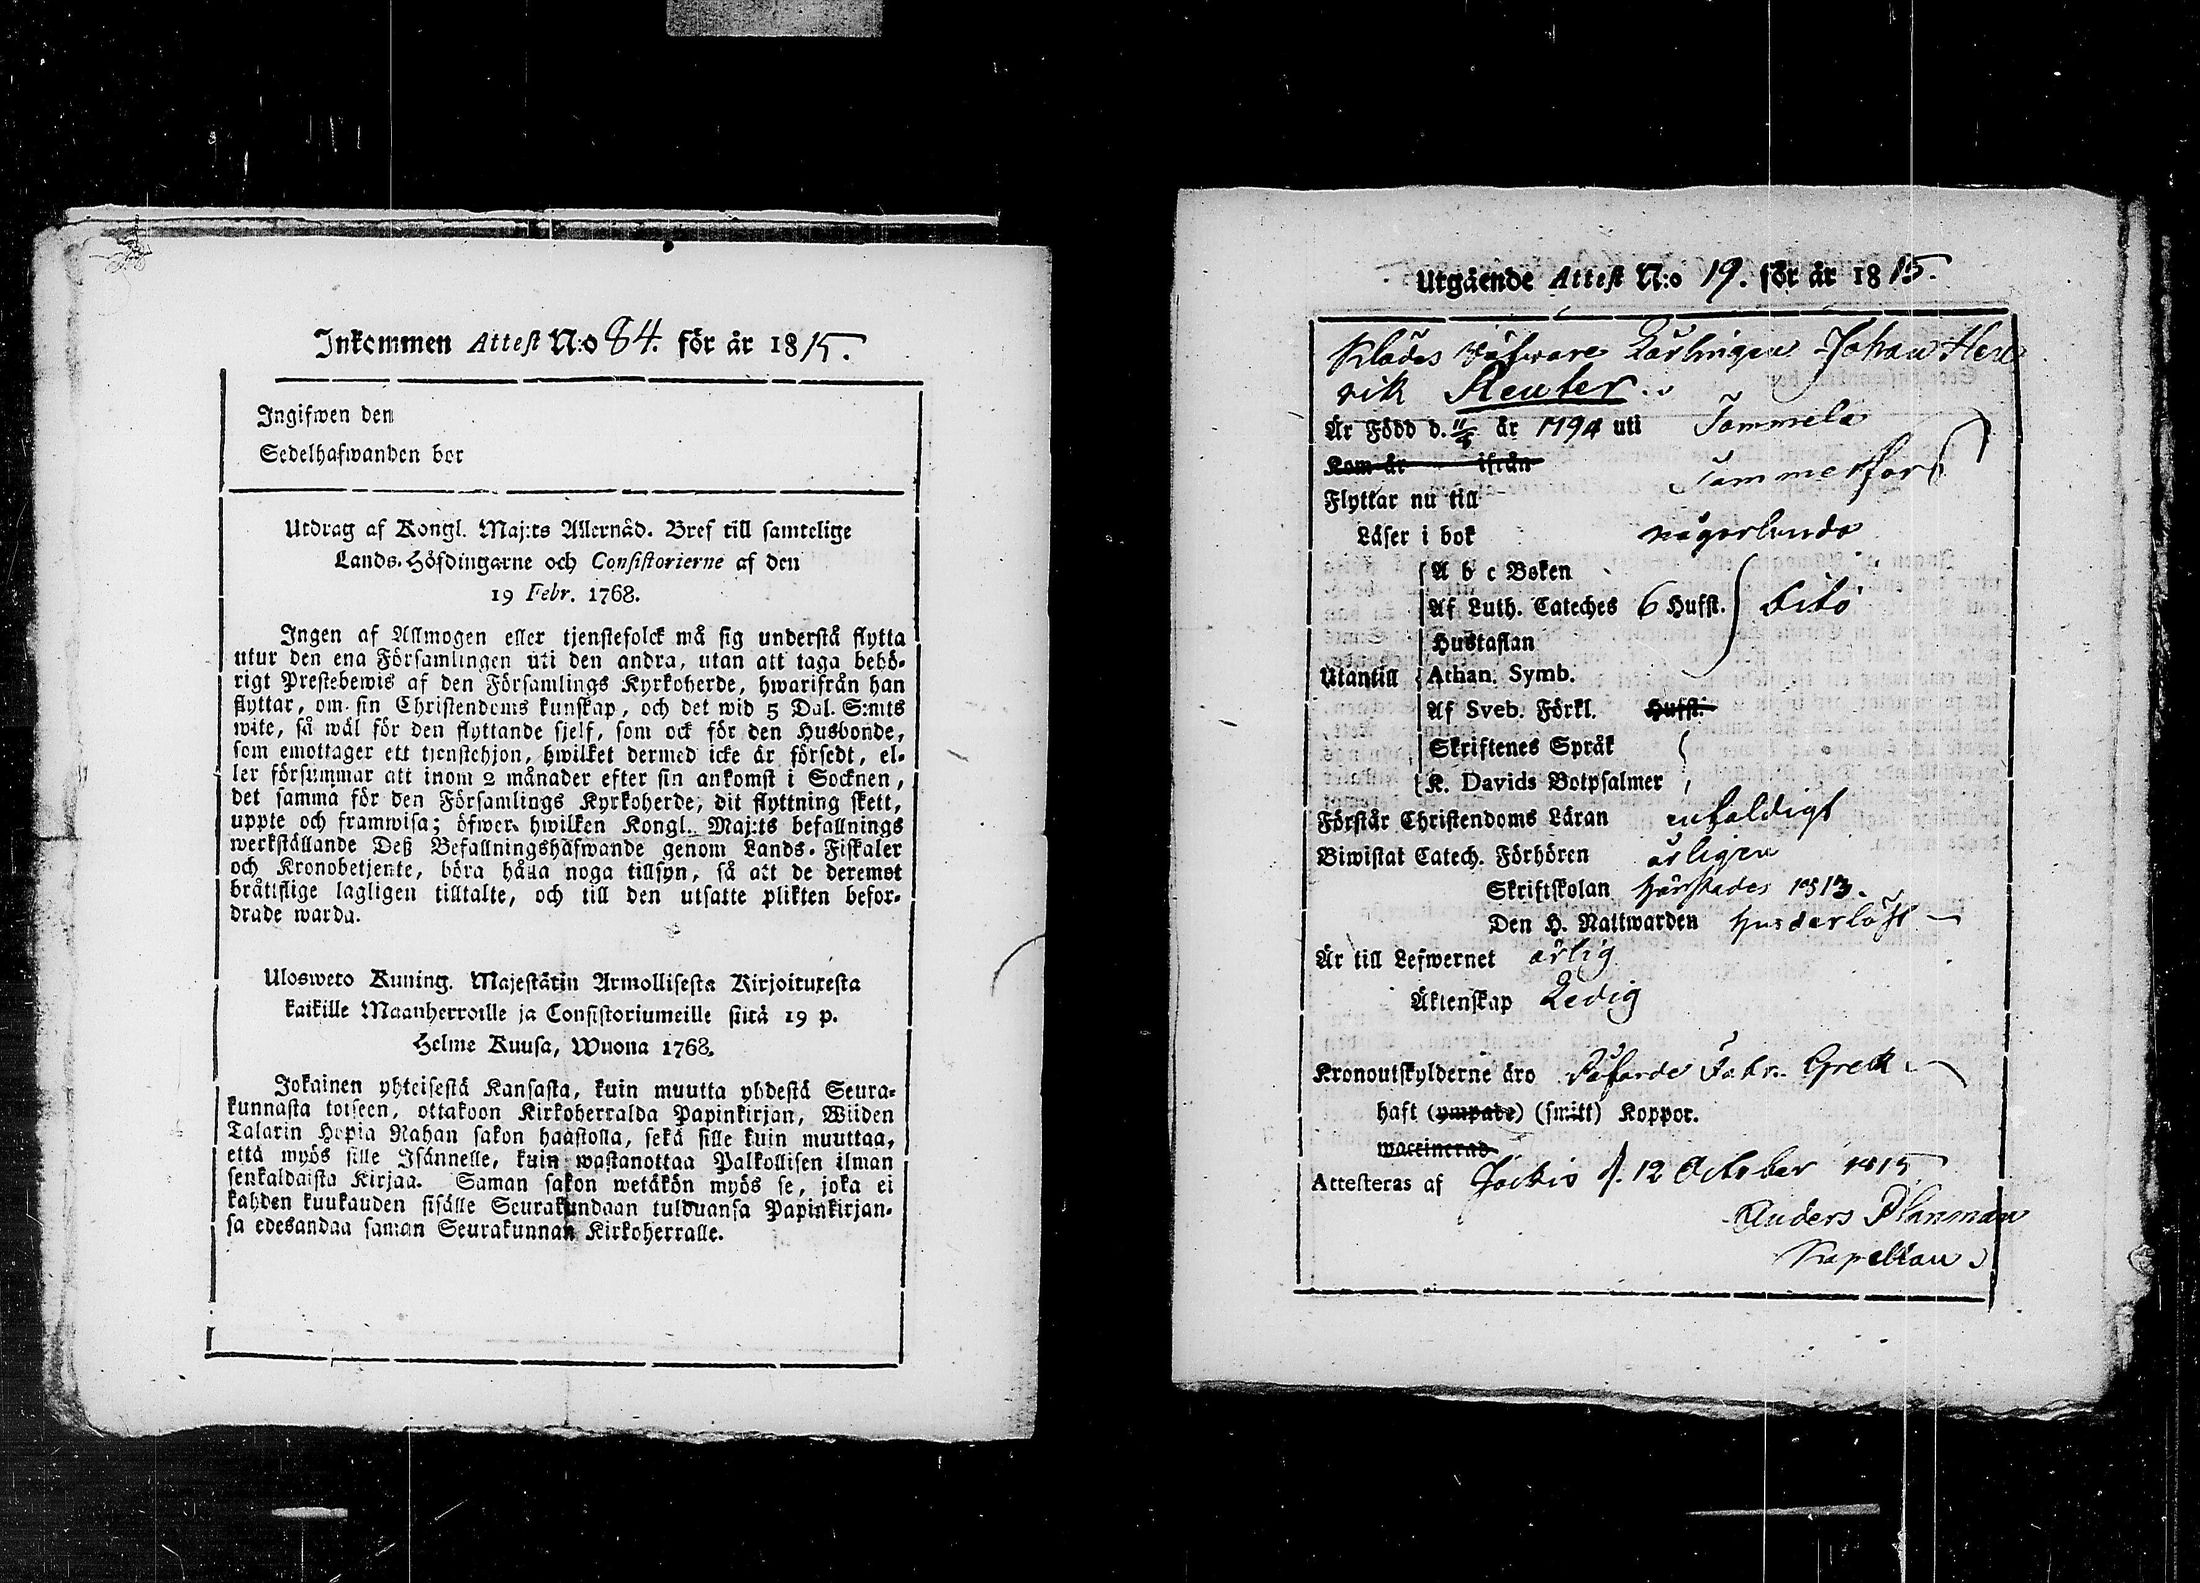 Inkommen Attest N:o 84. för år 1815.
Ingifwen den
Sedelhafwanden bor
Utdrag af Kongl. Maj:ts Allernåd. Bref till samtelige
Lands-Höfdingarne och Consistorierne af den
19 Febr. 1768.
Ingen af Allmogen eller tjenstefolck må sig understå flytta
utur den ena Församlingen uti den andra, utan att taga behö-
rigt Prestebewis af den Församlings Kyrkoherde, hwarifrån han
flyttar, om sin Christendoms kunskap, och det wid 5 Dal. S:mts
wite, så wäl för den flyttande sjelf, som ock för den Husbonde,
som emottager ett tjenstehjon, hwilket dermed icke är försedt, el-
ler försummar att inom 2 månader efter sin ankomst i Socknen,
det samma för den Församlings Kyrkoherde, dit flyttning skett,
uppte och framwisa; öfwer hwilken Kongl. Maj:ts befallnings
werkställande Deß Befallningshafwande genom Lands-Fiskaler
och Kronobetjente, böra hålla noga tillsyn, så att de deremot
bråttslige lagligen tilltalte, och till den utsatte plikten befor-
drade warda.
Ulosweto Kuning. Majestätin Armollisesta Kirjoituxesta
kaikille Maanherroille ja Consistoriumeille siitä 19 p.
Helme Kuusa, Wuona 1768.
Jokainen yhteisestä Kansasta, kuin muutta yhdestä Seura-
kunnasta toiseen, ottakoon Kirkoherralda Papinkirjan, Wiiden
Talarin Hopia Rahan sakon haastolla, sekä sille kuin muuttaa,
että myös sille Isännelle, kuin wastanottaa Palkollisen ilman
senkaldaista Kirjaa. Saman sakon wetäkön myös se, joka ei
kahden kuukauden sisälle Seurakundaan tulduansa Papinkirjan-
sa edesandaa saman Seurakunnan Kirkoherralle.
Utgående Attest N:o 19. för år 1815.
Klädes Väfvare Lärlingen Johan Hen
rik Reuter
Är Född d. 11/4 år 1794 uti Tammela
Kom år ifrån
Flyttar nu till Tammerfors
Läser i bok någorlunda
A b c Boken
Af Luth. Cateches 6 Hufst. dito
Hustaflan
Utantill Athan. Symb.
Af Sveb. Förkl. Hufst.
Skriftenes Språk
K. Davids Botpsalmer
Förstår Christendoms Läran enfaldigt
Biwistat Catech. Förhören årligen
Skriftskolan 1813.
Den H. Nattwarden
Är till Lefwernet ärlig
Äktenskap Ledig
Kronoutskylderne äro
haft (ympade) (smitt) Koppor.
waccinerad
Attesteras af Jockis d. 12 October 1815
Anders Planman
Kapellan